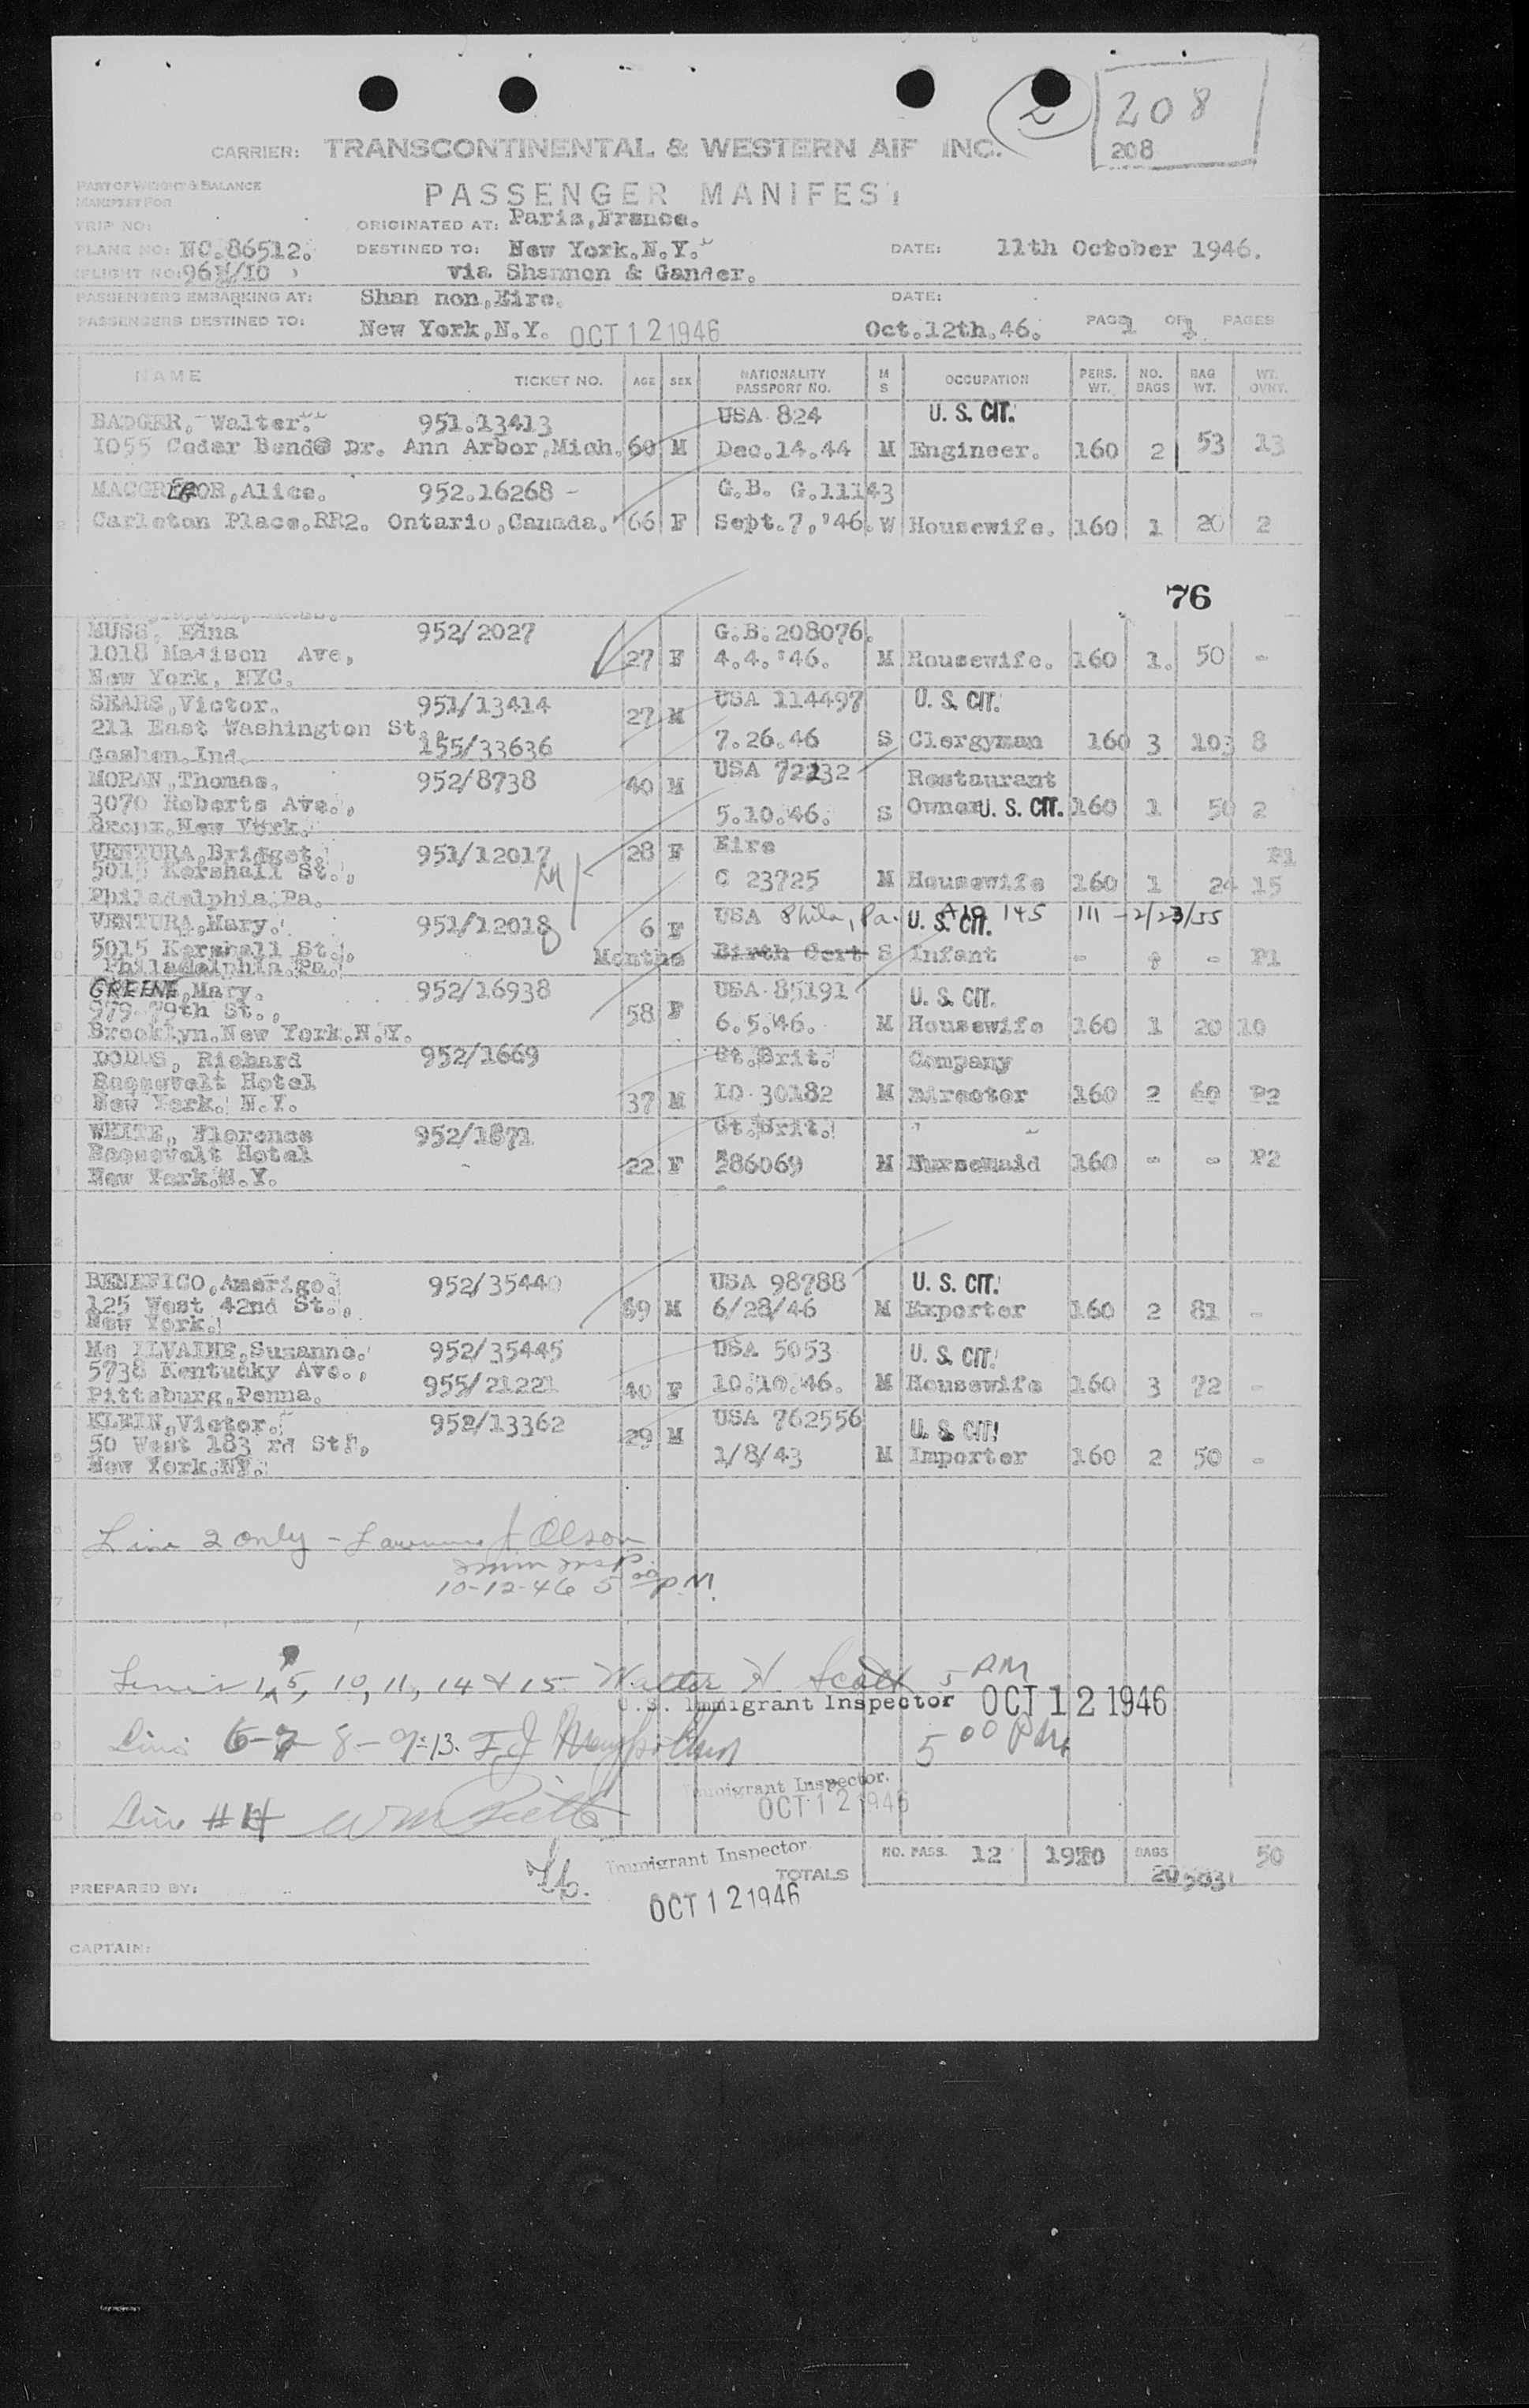 2
208
208
CARRIER: TRANSCONTINENTAL & WESTERN AIR INC.
PART OF WEIGHT & BALANCE
MANIFEST FOR
PASSENGER MANIFEST
TRIP NO: ORIGINATED AT: Paris,France.
PLANE NO: NC.86512. DESTINED TO: New York.N.Y. DATE: 11th October 1946.
FLIGHT NO: via Shannon & Gander.
PASSENGERS EMBARKING AT: Shan non,Eire. DATE:
PASSENGERS DESTINED TO: New York,N.Y. OCT 12 1946 Oct.12th.46. PAGE 1 OF 1 PAGES
NAME TICKET NO. AGE SEX NATIONALITY PASSPORT NO. M S OCCUPATION PERS. WT. NO. BAGS BAG WT. WT. OVNT.
BADGER, Walter. 951.13413 USA 824 U. S. CIT.
1055 Cedar Bend Dr. Ann Arbor,Mich. 60 M Dec.14.44 M Engineer. 160 2 53 13
MACGREGOR,Alice. 952.16268 - G.B. G.11143
Carleton Place.RR2. Ontario,Canada. 66 F Sept.7,'46. W Housewife. 160 1 20 2
76
MUSS, Edna 952/2027 G.B.208076.
1018 Madison Ave, 27 F 4.4.'46. M Housewife. 160 1. 50 -
New York, NYC.
SEARS,Victor. 951/13414 27 M USA 114497 U. S. CIT.
211 East Washington St.,
Goshen.Ind. 155/33636 7.26.46 S Clergyman 160 3 103 8
MORAN,Thomas. 952/8738 40 M USA 72232 Restaurant
3070 Roberts Ave., 5.10.46. S Owner U. S. CIT. 160 1 50 2
Bronx.New York.
VENTURA,Bridget. 951/12017 28 F Eire P1
5015 Kershall St., C 23725 M Housewife 160 1 24 15
Philadelphia.Pa.
VENTURA,Mary. 951/12018 6 F USA Phila, Pa. U. S. CIT. A19 145 111 - 2/23/55
5015 Kershall St., Months Birth Cert S Infant - - P1
Philadelphia.Pa.
GREENE,Mary. 952/16938 USA 85191 U. S. CIT.
979-79th St., 58 F 6.5.46. M Housewife 160 1 20 10
Brooklyn.New York.N.Y.
DODDS, Richard 952/1669 Gt.Brit. Company
Roosevelt Hotel 37 M LO 30182 M Director 160 2 60 P2
New York. N.Y.
WHITE, Florence 952/1871 Gt.Brit.
Roosevelt Hotel 22 F 286069 M Nursemaid 160 - - P2
New York.N.Y.
BENEFICO,Amerigo. 952/35440 USA 98788 U. S. CIT.
125 West 42nd St., 59 M 6/28/46 M Exporter 160 2 81 -
New York.
Mc ILVAINE,Suzanne. 952/35445 USA 5053 U. S. CIT.
5738 Kentucky Ave., 955/21221 40 F 10.10.46. M Housewife 160 3 72 -
Pittsburg,Penna.
KLEIN,Victor. 952/13362 29 M USA 762556 U. S. CIT.
50 West 183 rd St., 1/8/43 M Importer 160 2 50 -
New York.NY.
Line 2 only - Lawrence J Olson
Imm Insp
10-12-46 5 00 P.M.
Lines 1, 5, 10, 11, 14 & 15 Walter H. Scott 5 PM
U.S. Immigrant Inspector OCT 12 1946
Line 6-7-8-9-13. 5 00 PM
Immigrant Inspector.
OCT 12 1946
Line #4
Immigrant Inspector
TOTALS NO. PASS. 12 1920 BAGS 20 50
PREPARED BY:
OCT 12 1946
CAPTAIN: